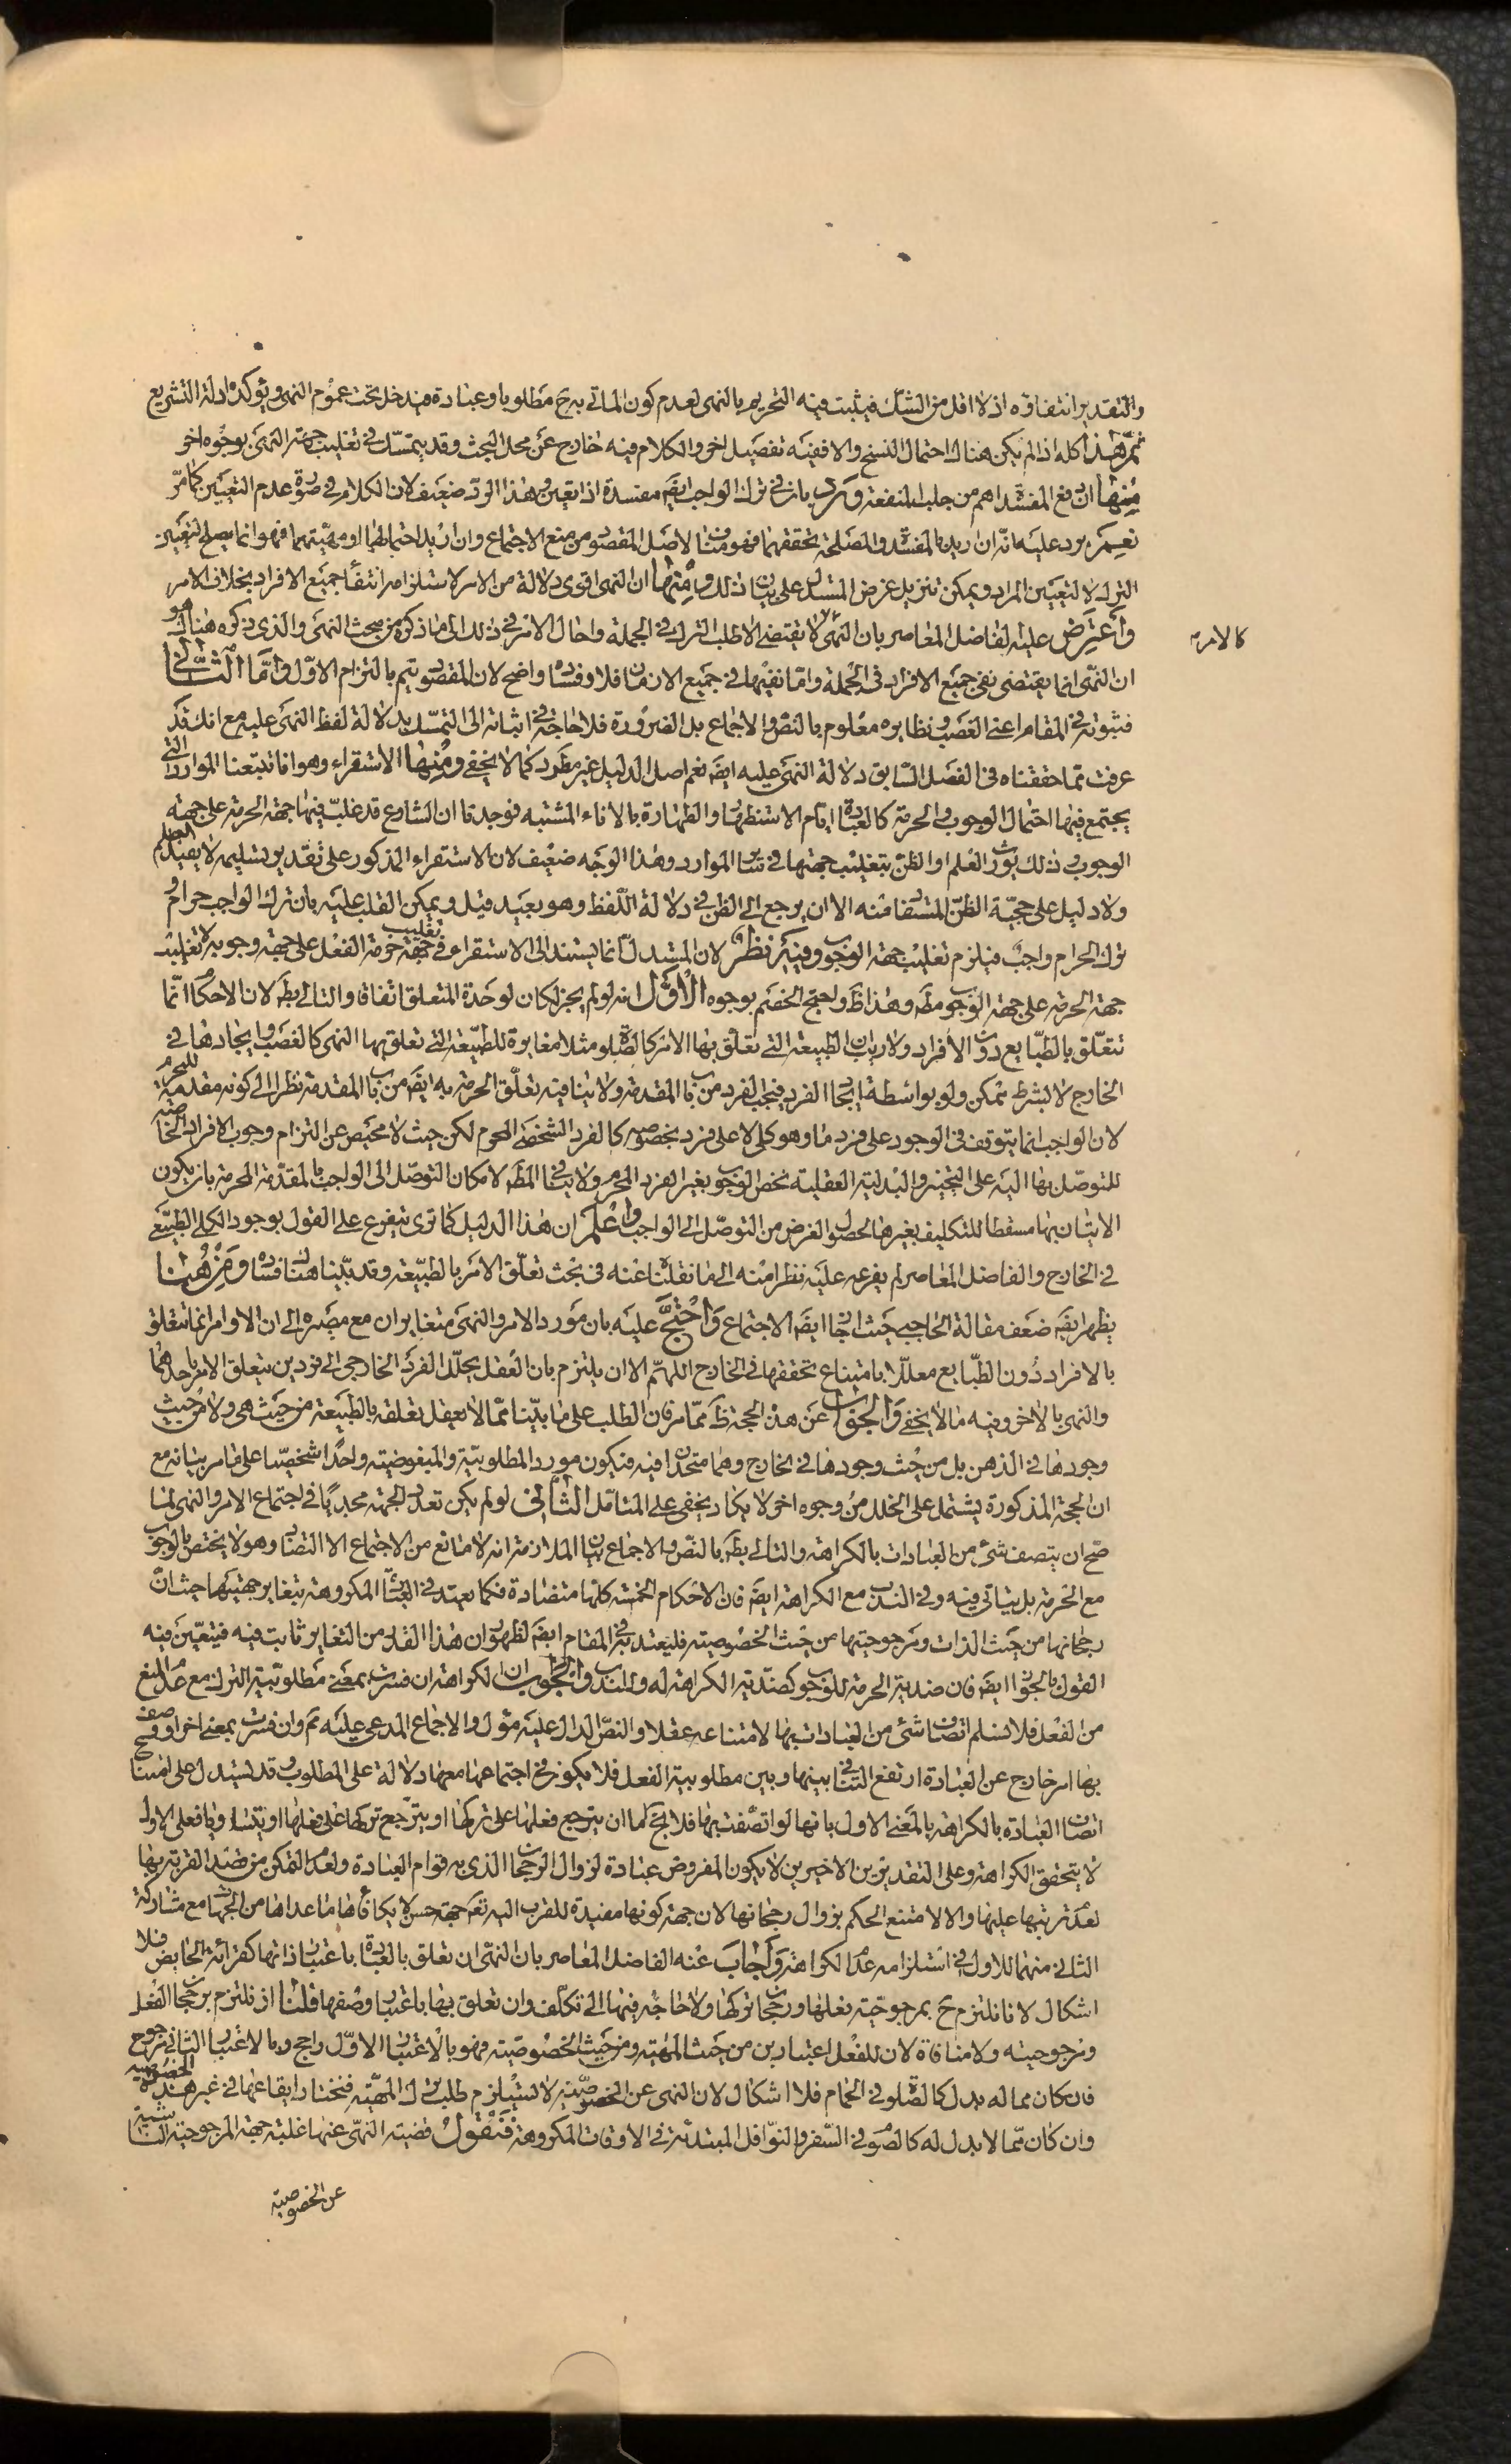 والتقدير انتفاؤه اذ لا اقل من الشك فيثبت فيه التحريم بالنهى لعدم كون الماتي به ح مطلوبا وعبادة فيدخل تحت عموم النهى ويؤكده ادلة التشريع
ثم هذا كله اذا لم يكن هناك احتمال النسخ والا ففيه تفصيل اخر والكلام فيه خارج عن محل البحث وقد يتمسك في تغليب جهة النهى بوجوه اخر
منها ان دفع المفسدة اهم من جلب المنفعة ورد بان في ترك الواجب ايضه مفسدة اذا تعين وهذا الرد ضعيف لان الكلام في صورة عدم التعيين كما مر
نعم يرد عليه انه ان اريد بالمفسدة والمصلحة تحققهما فهو مناف لاصل المقصود من منع الاجتماع وان اريد احتمالهما او مهيتهما فهو انما يصلح لتعيين
الترك لا لتعيين المراد ويمكن تنزيل غرض المستدل على بيان ذلك ومنها ان النهى اقوى دلالة من الامر لاستلزامه انتفاء جميع الافراد بخلاف الامر
واعترض عليه الفاضل المعاصر بان النهى لا يقتضى الا طلب الترك في الجملة واحال الامر في ذلك الى ما ذكره من مبحث النهى والذى ذكره هناك هو
كالامر
ان النهى انما يقتضى نفى جميع الافراد فى الجملة واما نفيها في جميع الازمان فلا وفساده واضح لان المقصود يتم بالتزام الاول واما الثاني
فثبوته في المقام اعنى الغصب ونظايره معلوم بالنص والاجماع بل الضرورة فلا حاجة في اثباته الى التمسك بدلالة لفظ النهى عليه مع انك قد
عرفت مما حققناه فى الفصل السابق دلالة النهى عليه ايضه نعم اصل الدليل غير مطرد كما لا يخفى ومنها الاستقراء وهو انا تتبعنا الموارد التى
يجتمع فيها احتمال الوجوب والحرمة كالعبادة ايام الاستظهار والطهارة بالاناء المشتبه فوجدنا ان الشارع قد غلب فيها جهة الحرمة على جهة
الوجوب وذلك يورث العلم او الظن بتغليب جهتها في ساير الموارد وهذا الوجه ضعيف لان الاستقراء المذكور على تقدير تسليمه لا يفيد العلم
ولا دليل على حجية الظن المستفاد منه الا ان يرجع الى الظن في دلالة اللفظ وهو بعيد قيل ويمكن القلب عليه بان ترك الواجب حرام و
ترك الحرام واجب فيلزم تغليب جهة الوجوب وفيه نظر لان المستدل انما يستند الى الاستقراء في تغليب جهة حرمة الفعل على جهة وجوبه لا تغليب
جهة الحرمة على جهة الوجوب مطه وهذا ظ واحتج الخصم بوجوه الاول انه لو لم يجز لكان لوحدة المتعلق اتفاقا والتالى بط لان الاحكام انما
تتعلق بالطبايع دون الافراد ولا ريب ان الطبيعة التى تعلق بها الامر كالصلوة مثلا مغايرة للطبيعة التى تعلق بها النهى كالغصب وايجادها في
الخارج لا بشرط ممكن ولو بواسطة ايجاد الفرد فيجب الفرد من باب المقدمة ولا ينافيه تعلق الحرمة به ايضه من باب المقدمة نظرا الى كونه مقدمة للمحرم
لان الواجب انما يتوقف فى الوجود على فرد ما وهو كلى لا على فرد بخصوصه كالفرد الشخصى المحرم لكن حيث لا محيص عن التزام وجوب الافراد الخاصة
للتوصل بها اليه على التخيير والبدلية العقلية نخص الوجوب بغير الفرد المحرم ولا ينافى المطه لامكان التوصل الى الواجب بالمقدمة المحرمة بان يكون
الاتيان بها مسقطا للتكليف بغيرها لحصول الغرض من التوصل الى الواجب واعلم ان هذا الدليل كما ترى يتفرع على القول بوجود الكلى الطبيعى
في الخارج والفاضل المعاصر لم يفرعه عليه نظرا منه الى ما نقلناه عنه فى بحث تعلق الامر بالطبيعة وقد بينا هناك فساده ومن هنا
يظهر ايضه ضعف مقالة الحاجبى حيث اجاز ايضه الاجتماع واحتج عليه بان مورد الامر والنهى متغايران مع مصيره الى ان الاوامر انما تتعلق
بالافراد دون الطبايع معللا بامتناع تحققها في الخارج اللهم الا ان يلتزم بان العقل يحلل الفرد الخارجى الى فردين يتعلق الامر باحدهما
والنهى بالاخر وفيه ما لا يخفى والجواب عن هذه الحجة ظ مما مر فان الطلب على ما بينا مما لا يعقل تعلقه بالطبيعة من حيث هى ولا من حيث
وجودها في الذهن بل من حيث وجودها في الخارج وهما متحدان فيه فيكون مورد المطلوبية والمبغوضية واحدا شخصيا على ما مر بيانه مع
ان الحجة المذكورة يشتمل على الخلل من وجوه اخر لا يكاد يخفى على المتامل الثاني لو لم يكن تعدد الجهة مجديا في اجتماع الامر والنهى لما
صح ان يتصف شئ من العبادات بالكراهة والتالى بط بالنص والاجماع بيان الملازمة انه لا مانع من الاجتماع الا التضاد وهو لا يختص بالوجوب
مع الحرمة بل يتاتى فيه وفي الندب مع الكراهة ايضه فان الاحكام الخمسة كلها متضادة فكما يعتد في العبادات المكروهة بتغاير جهتيها حيث ان
رجحانها من حيث الذات ومرجوحيتها من حيث الخصوصية فليعتد به في المقام ايضه لظهور ان هذا القدر من التغاير ثابت فيه فيتعين فيه
القول بالجواز ايضه فان ضدية الحرمة للوجوب كضدية الكراهة له وللندب والجواب ان الكراهة ان فسرت بمعنى مطلوبية الترك مع عدم المنع
من الفعل فلا نسلم اتصاف شئ من العبادات بها لامتناعه عقلا والنص الدال عليه مؤل والاجماع المدعى عليه مم وان فسرت بمعنى اخر او وصف
بها امر خارج عن العبادة ارتفع التنافى بينها وبين مطلوبية الفعل فلا يكون في اجتماعها معها دلالة على المطلوب وقد يستدل على امتناع
اتصاف العبادة بالكراهة بالمعنى الاول بانها لو اتصفت بها فلا يخ اما ان يترجح فعلها على تركها او يترجح تركها على فعلها او يتساويا فعلى الاول
لا يتحقق الكراهة وعلى التقديرين الاخيرين لا يكون المفروض عبادة لزوال الرجحان الذى به قوام العبادة ولعدم التمكن من قصد القربة بها
لعدم ترتبها عليها والا لامتنع الحكم بزوال رجحانها لان جهة كونها مفيدة للقرب اليه تعه جهة حسن لا يكافؤها ما عداها من الجهات مع مشاركة
الثاني منهما للاول في استلزامه عدم الكراهة واجاب عنه الفاضل المعاصر بان النهى ان تعلق بالعبادة باعتبار ذاتها كقرائة الحايض فلا
اشكال لانا نلتزم ح بمرجوحية فعلها ورجحان تركها ولا حاجة فيها الى تكلف وان تعلق بها باعتبار وصفها فلنا ان نلتزم برجحان الفعل
ومرجوحيته ولا منافاة لان للفعل اعتبارين من حيث المهية ومن حيث الخصوصية فهو بالاعتبار الاول راجح وبالاعتبار الثاني مرجوح
فان كان مما له بدل كالصلوة في الحمام فلا اشكال لان النهى عن الخصوصية لا يستلزم طلب ترك المهية فنختار ايقاعها في غير هذه الخصوصية
وان كان مما لا بدل له كالصوم في السفر والنوافل المبتدئة في الاوقات المكروهة فنقول قضية النهى عنها غلبة جهة المرجوحية الناشية
عن الخصوصية